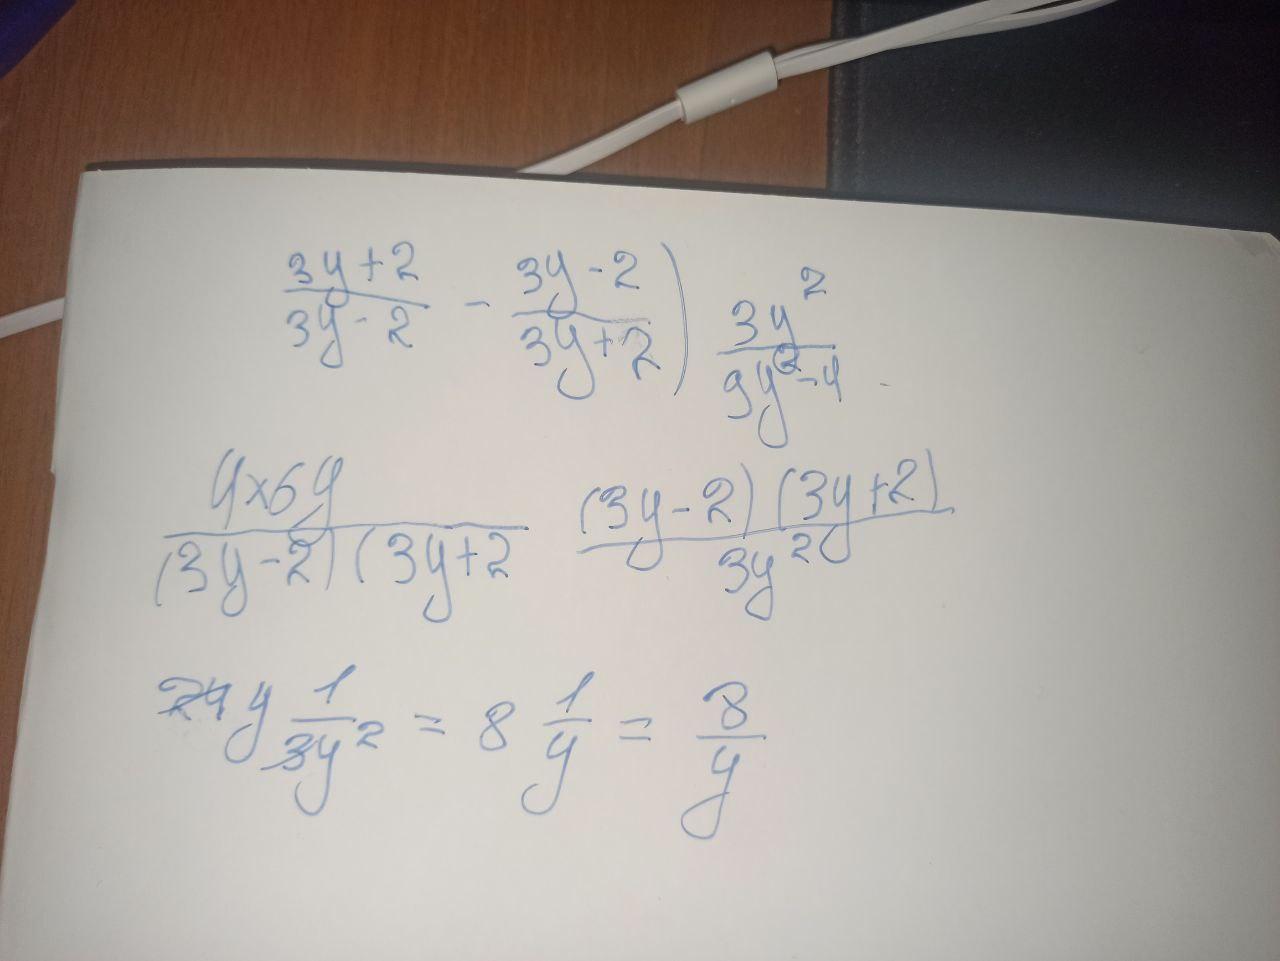 3y+2/3y-2 - 3y-2/3y+2) 3y²/9y²-4
4×6y/(3y-2)(3y+2 (3y-2)(3y+2)/3y²
24y 1/3y² = 8 1/y = 8/y